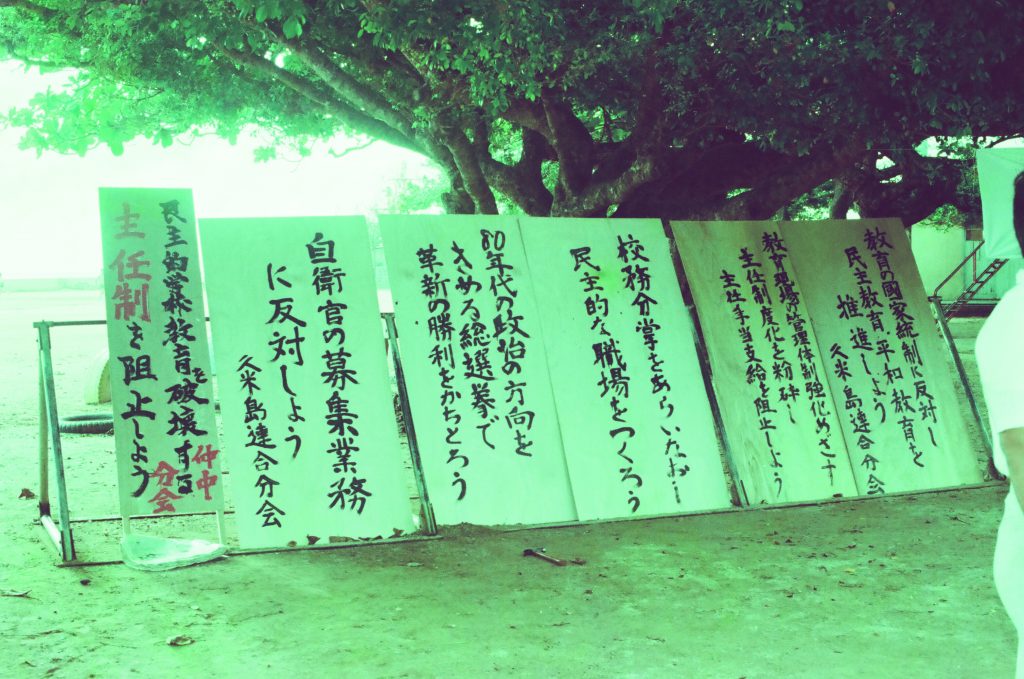 教育の国家統制に反対し
民主教育平和教育を
推進しよう
久米島連合分会
教育現場の管理体制強化めざす
主任制度化を粉砕し
主任手当支給を阻止しよう
校務分掌をあらいなおし
民主的な職場をつくろう
80年代の政治の方向を
きめる総選挙で
革新の勝利をかちとろう
自衛官の募集業務
に反対しよう
久米島連合分会
民主的学校教育を破壊する
主任制を阻止しよう
仲中
分会